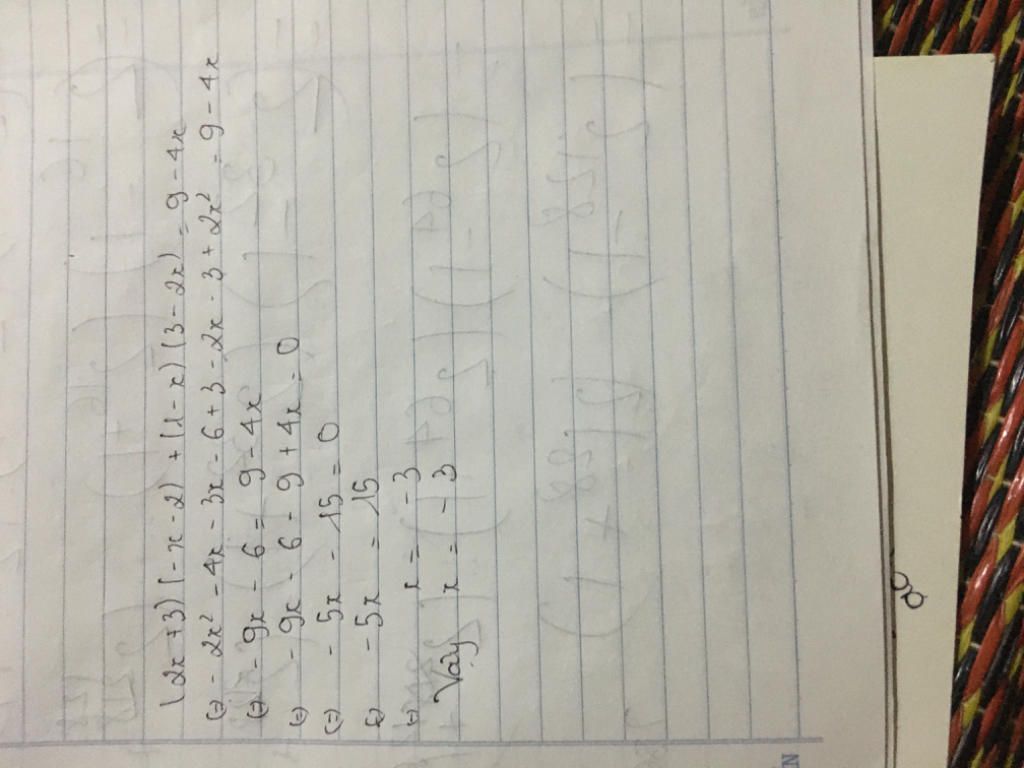 (2x + 3)(-x - 2) + (1 - x)(3 - 2x) = 9 - 4x
(=) - 2x² - 4x - 3x - 6 + 3 - 2x - 3 + 2x² = 9 - 4x
(=) - 9x - 6 = 9 - 4x
(=) - 9x - 6 - 9 + 4x = 0
(=) - 5x - 15 = 0
(=) - 5x = 15
(=) x = - 3
Vậy x = - 3